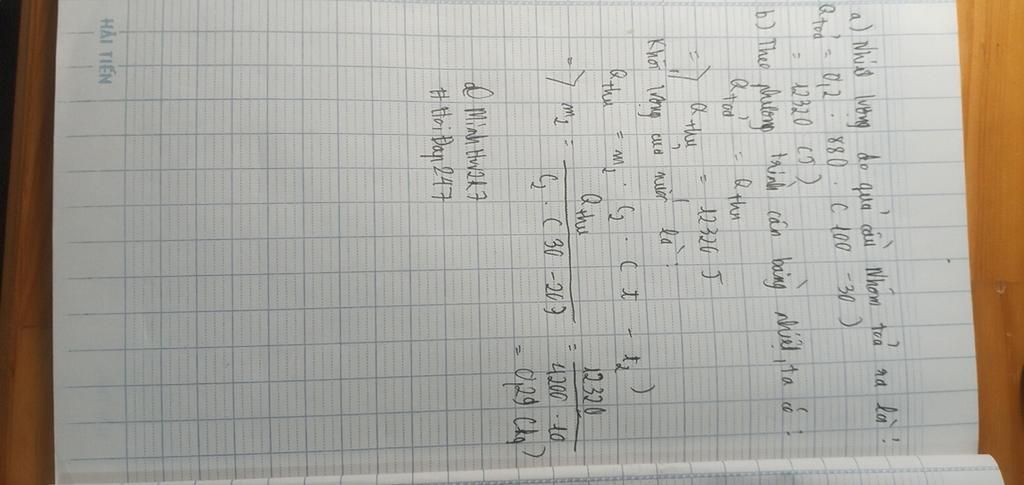 a) Nhiệt lượng do quả cầu nhôm toả ra là:
Qtoả = 0,2 . 880 . (100 - 30)
= 12320 (J)
b) Theo phương trình cân bằng nhiệt, ta có:
Qtoả = Qthu
=> Qthu = 12320 J
Khối lượng của nước là:
Qthu = m2 . C2 . (t - t2)
=> m2 = Qthu / C2 . (30 - 20) = 12320 / 4200 . 10
= 0,29 (kg)
@MinhHv2k7
#HoiDap247
HẢI TIẾN